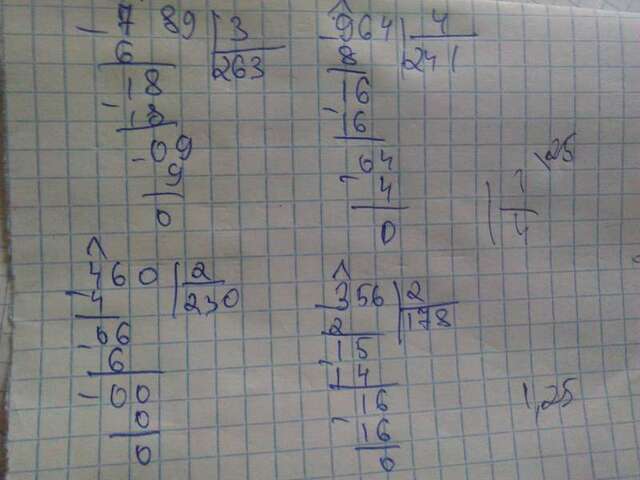 789 3
6 263
18
18
09
9
0
964 4
8 241
16
16
64
4
0
460 2
4 230
06
6
00
0
0
356 2
2 178
15
14
16
16
0
1,25